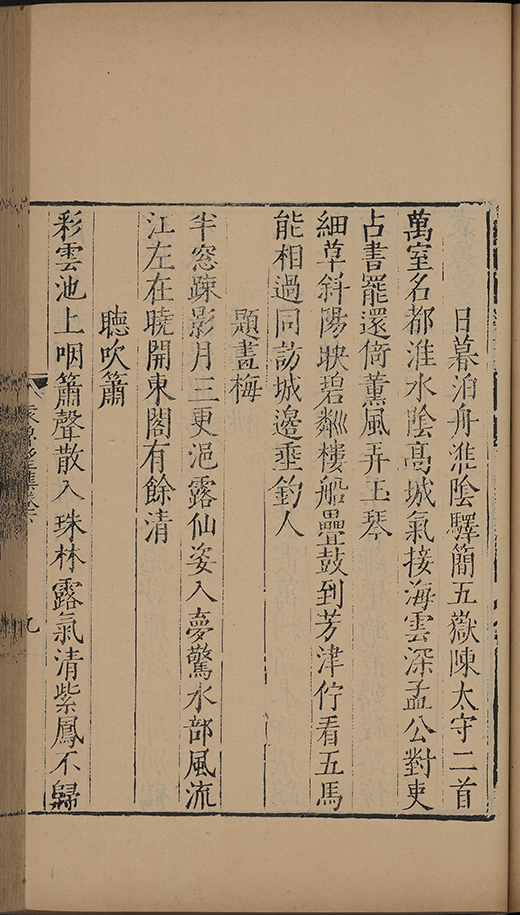 日暮泊舟淮陰驛簡五嶽陳太守二首
萬室名都淮水陰高城氣接海雲深孟公對吏
占書罷還倚薰風弄玉琴
細草斜陽映碧粼樓船疊鼓到芳津佇看五馬
能相過同訪城邊垂釣人
題畫梅
半窓疎影月三更浥露仙姿入夢驚水部風流
江左在曉開東閣有餘清
聽吹簫
彩雲池上咽簫聲散入珠林露氣清紫鳳不歸
九